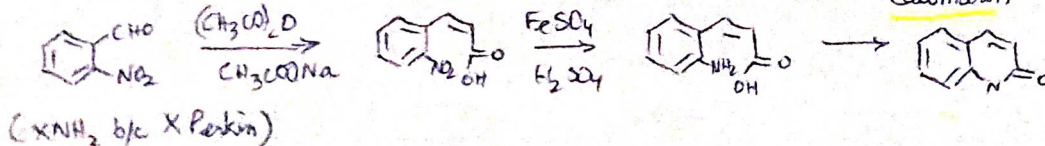 CHO
(CH₃CO)₂O
CH₃COONa
NO₂
NO₂
OH
O
FeSO₄
H₂SO₄
NH₂
OH
O
N
O
(×NH₂ b/c × Perkin)